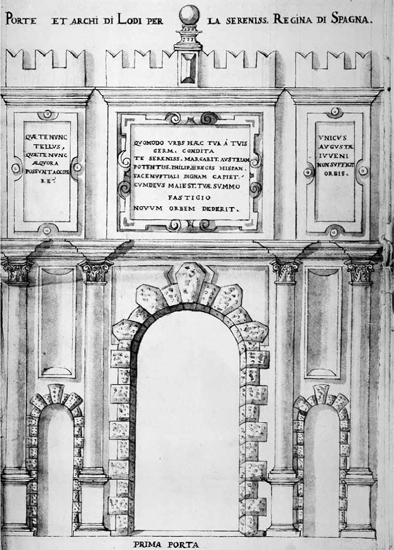 PORTE ET ARCHI DI LODI PER LA SERENISS. REGINA DI SPAGNA.
QVÆ TE NVNC
TELLVS,
QVÆ TE NVNC
ÆQVORA
POSSVNT ACCIPE
RE?
QVOMODO VRBS HÆC TVA Á TVIS
GERM. CONDITA
TE SERENISS. MARGARIT. AVSTRIAM
POTENTISS. PHILIPPI REGIS HISPAN.
FACE NVPTIALI DIGNAM CAPIET,
CVM DEVS MAIEST. TVÆ SVMMO
FASTIGIO
NOVVM ORBEM DEDERIT.
VNICVS
AVGVSTÆ
IVVENI
NON SVFFICIT
ORBIS.
PRIMA PORTA